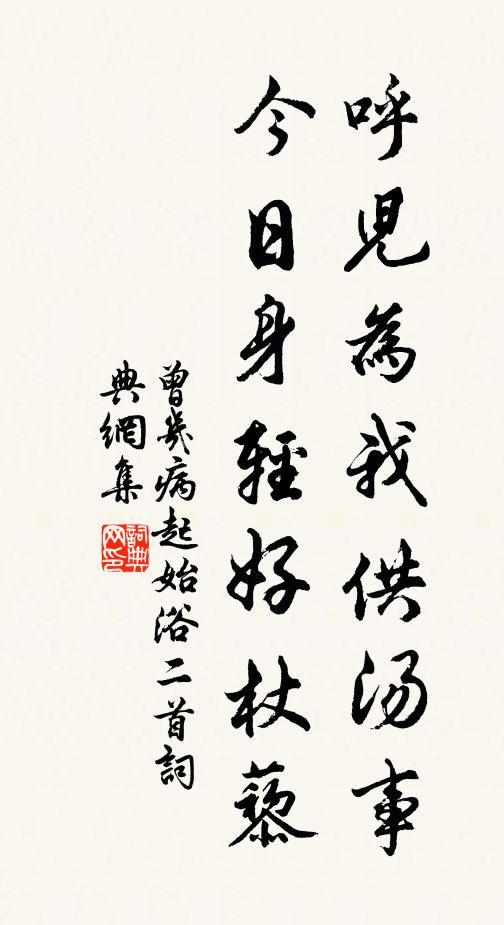 呼児為我供湯事
今日身輕好杖藜
曾幾病起始浴二首詞
典網集
詞典网印